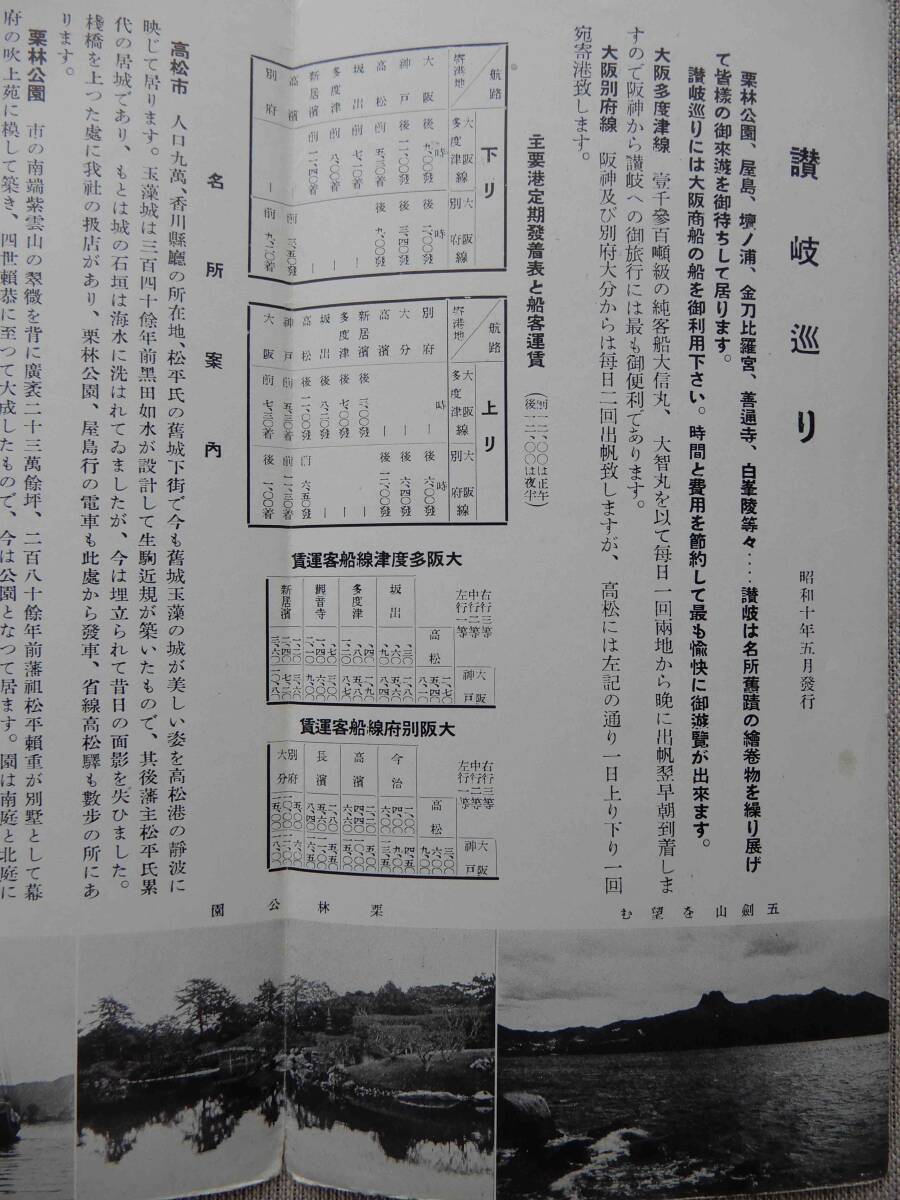 讃岐巡り
昭和十年五月發行
栗林公園、屋島、壇ノ浦、金刀比羅宮、善通寺、白峯陵等々‥‥讃岐は名所舊蹟の繪巻物を繰り展げ
て皆樣の御來遊を御待ちして居ります。
讃岐巡りには大阪商船の船を御利用下さい。時間と費用を節約して最も愉快に御遊覽が出來ます。
大阪多度津線　壹千參百噸級の純客船大信丸、大智丸を以て每日一回兩地から晩に出帆翌早朝到着しま
すので阪神から讃岐への御旅行には最も御便利であります。
大阪別府線　阪神及び別府大分からは每日二回出帆致しますが、高松には左記の通り一日上り下り一回
宛寄港致します。
主要港定期發着表と船客運賃
（前一二、〇〇は正午
後一二、〇〇は夜半）
航路
寄港地
下リ
大阪多度津線
大阪別府線
大阪　後九、〇〇發　後二、〇〇發
神戸　後一一、〇〇發　後三、四〇發
高松　前五、三〇發　後九、〇〇發
坂出　前七、一〇發　―
多度津　前八、〇〇發　―
新居濱　前一一、四〇着　―
高濱　―　前三、五〇發
別府　―　前九、二〇着
航路
寄港地
上リ
大阪多度津線
大阪別府線
別府　―　後六、〇〇發
大分　―　後六、四〇發
高濱　―　後一二、〇〇發
新居濱　後三、〇〇發　―
多度津　後七、〇〇發　―
坂出　後八、二〇發　―
高松　後一一、〇〇發　前六、五〇發
神戸　前五、三〇着　前一一、三〇着
大阪　前七、三〇着　後一、〇〇着
大阪多度津線船客運賃
右行三等
中行二等
左行一等
高松
大阪神戸
坂出
多度津
觀音寺
新居濱
大阪別府線船客運賃
右行三等
中行二等
左行一等
高松
大阪神戸
今治
高濱
長濱
別府大分
名所案內
高松市　人口九萬、香川縣廳の所在地、松平氏の舊城下街で今も舊城玉藻の城が美しい姿を高松港の靜波に
映じて居ります。玉藻城は三百四十餘年前黑田如水が設計して生駒近規が築いたもので、其後藩主松平氏累
代の居城であり、もとは城の石垣は海水に洗はれてゐましたが、今は埋立られて昔日の面影を失ひました。
棧橋を上つた處に我社の扱店があり、栗林公園、屋島行の電車も此處から發車、省線高松驛も數步の所にあ
ります。
栗林公園　市の南端紫雲山の翠微を背に廣袤二十三萬餘坪、二百八十餘年前藩祖松平賴重が別墅として幕
府の吹上苑に模して築き、四世賴恭に至つて大成したもので、今は公園となつて居ます。園は南庭と北庭に
五劍山を望む
栗林公園